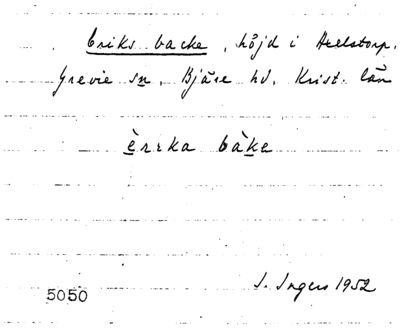 Eriks backe, höjd i Hellstorp.
Grevie sn, Bjäre hd. Krist. län
èrrka bàke
I. Ingers 1952
5050